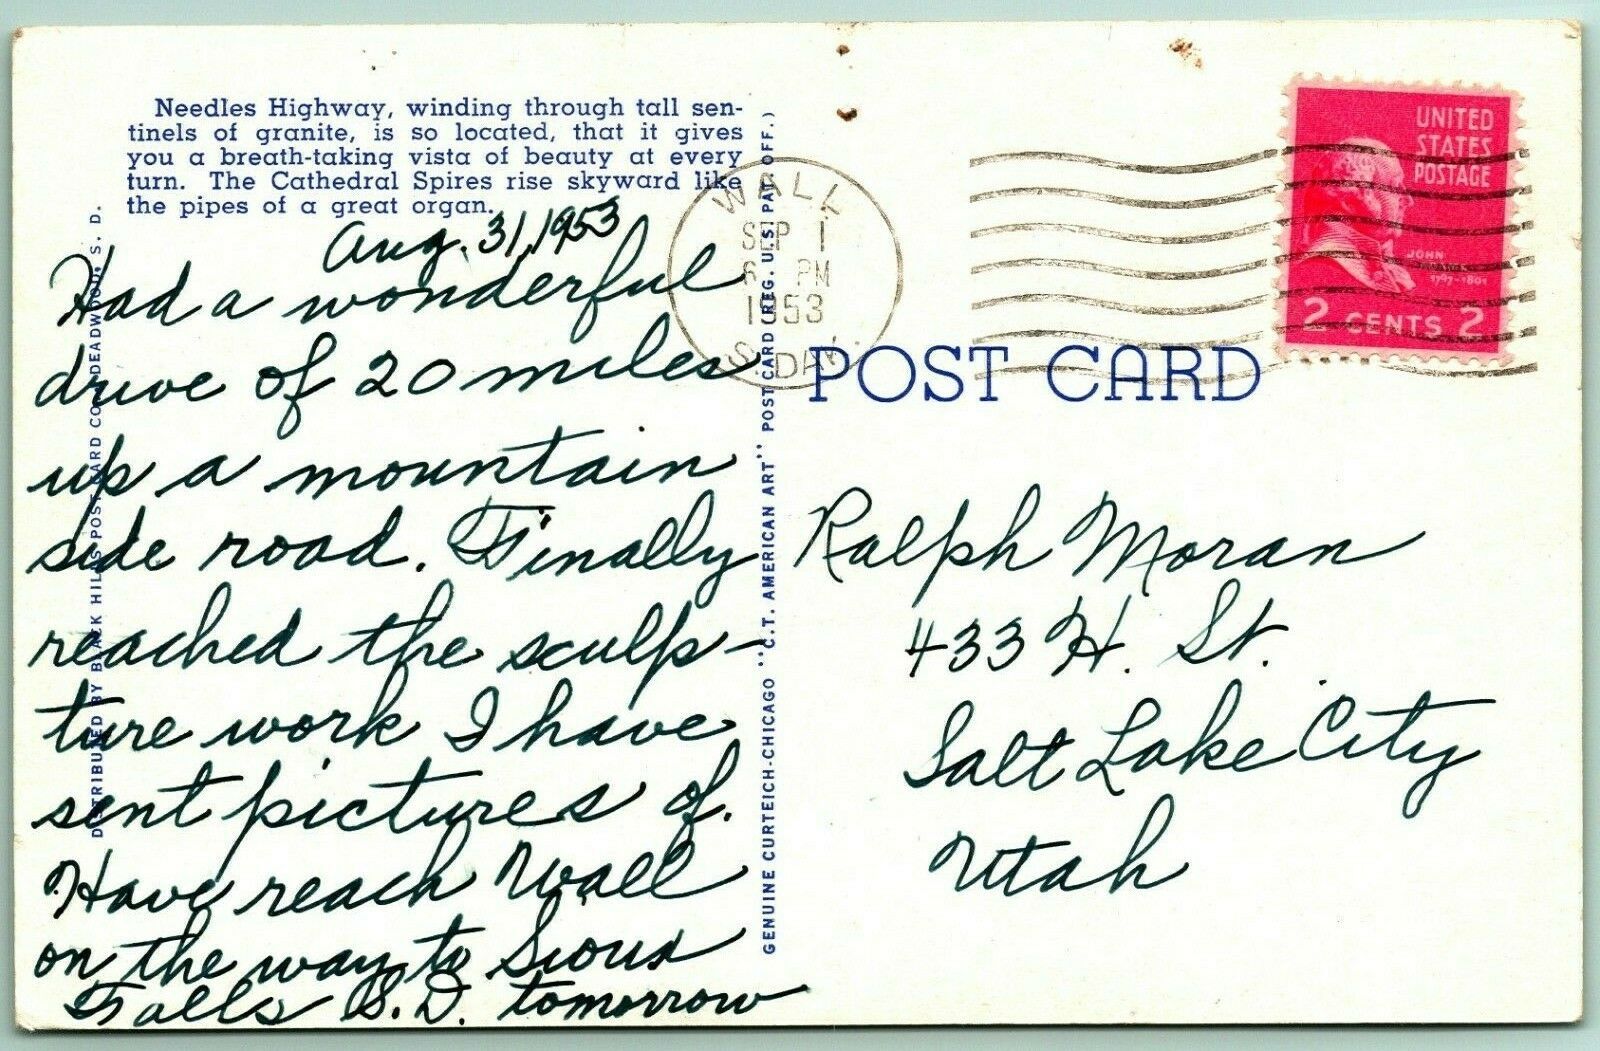 Needles Highway, winding through tall sen-
tinels of granite, is so located, that it gives
you a breath-taking vista of beauty at every
turn. The Cathedral Spires rise skyward like
the pipes of a great organ.
Aug. 31, 1953
Had a wonderful
drive of 20 miles
up a mountain
side road. Finally
reached the sculp-
ture work I have
sent pictures of.
Have reach Wall
on the way to Sioux
Falls S.D. tomorrow
DISTRIBUTED BY BLACK HILLS POST CARD CO., DEADWOOD, S. D.
GENUINE CURTEICH-CHICAGO "C.T. AMERICAN ART" POST CARD (REG. U.S. PAT. OFF.)
WALL
SEP 1
6 PM
1953
S. DAK.
UNITED
STATES
POSTAGE
JOHN
1797-1801
2 CENTS 2
POST CARD
Ralph Moran
433 H. St.
Salt Lake City
Utah